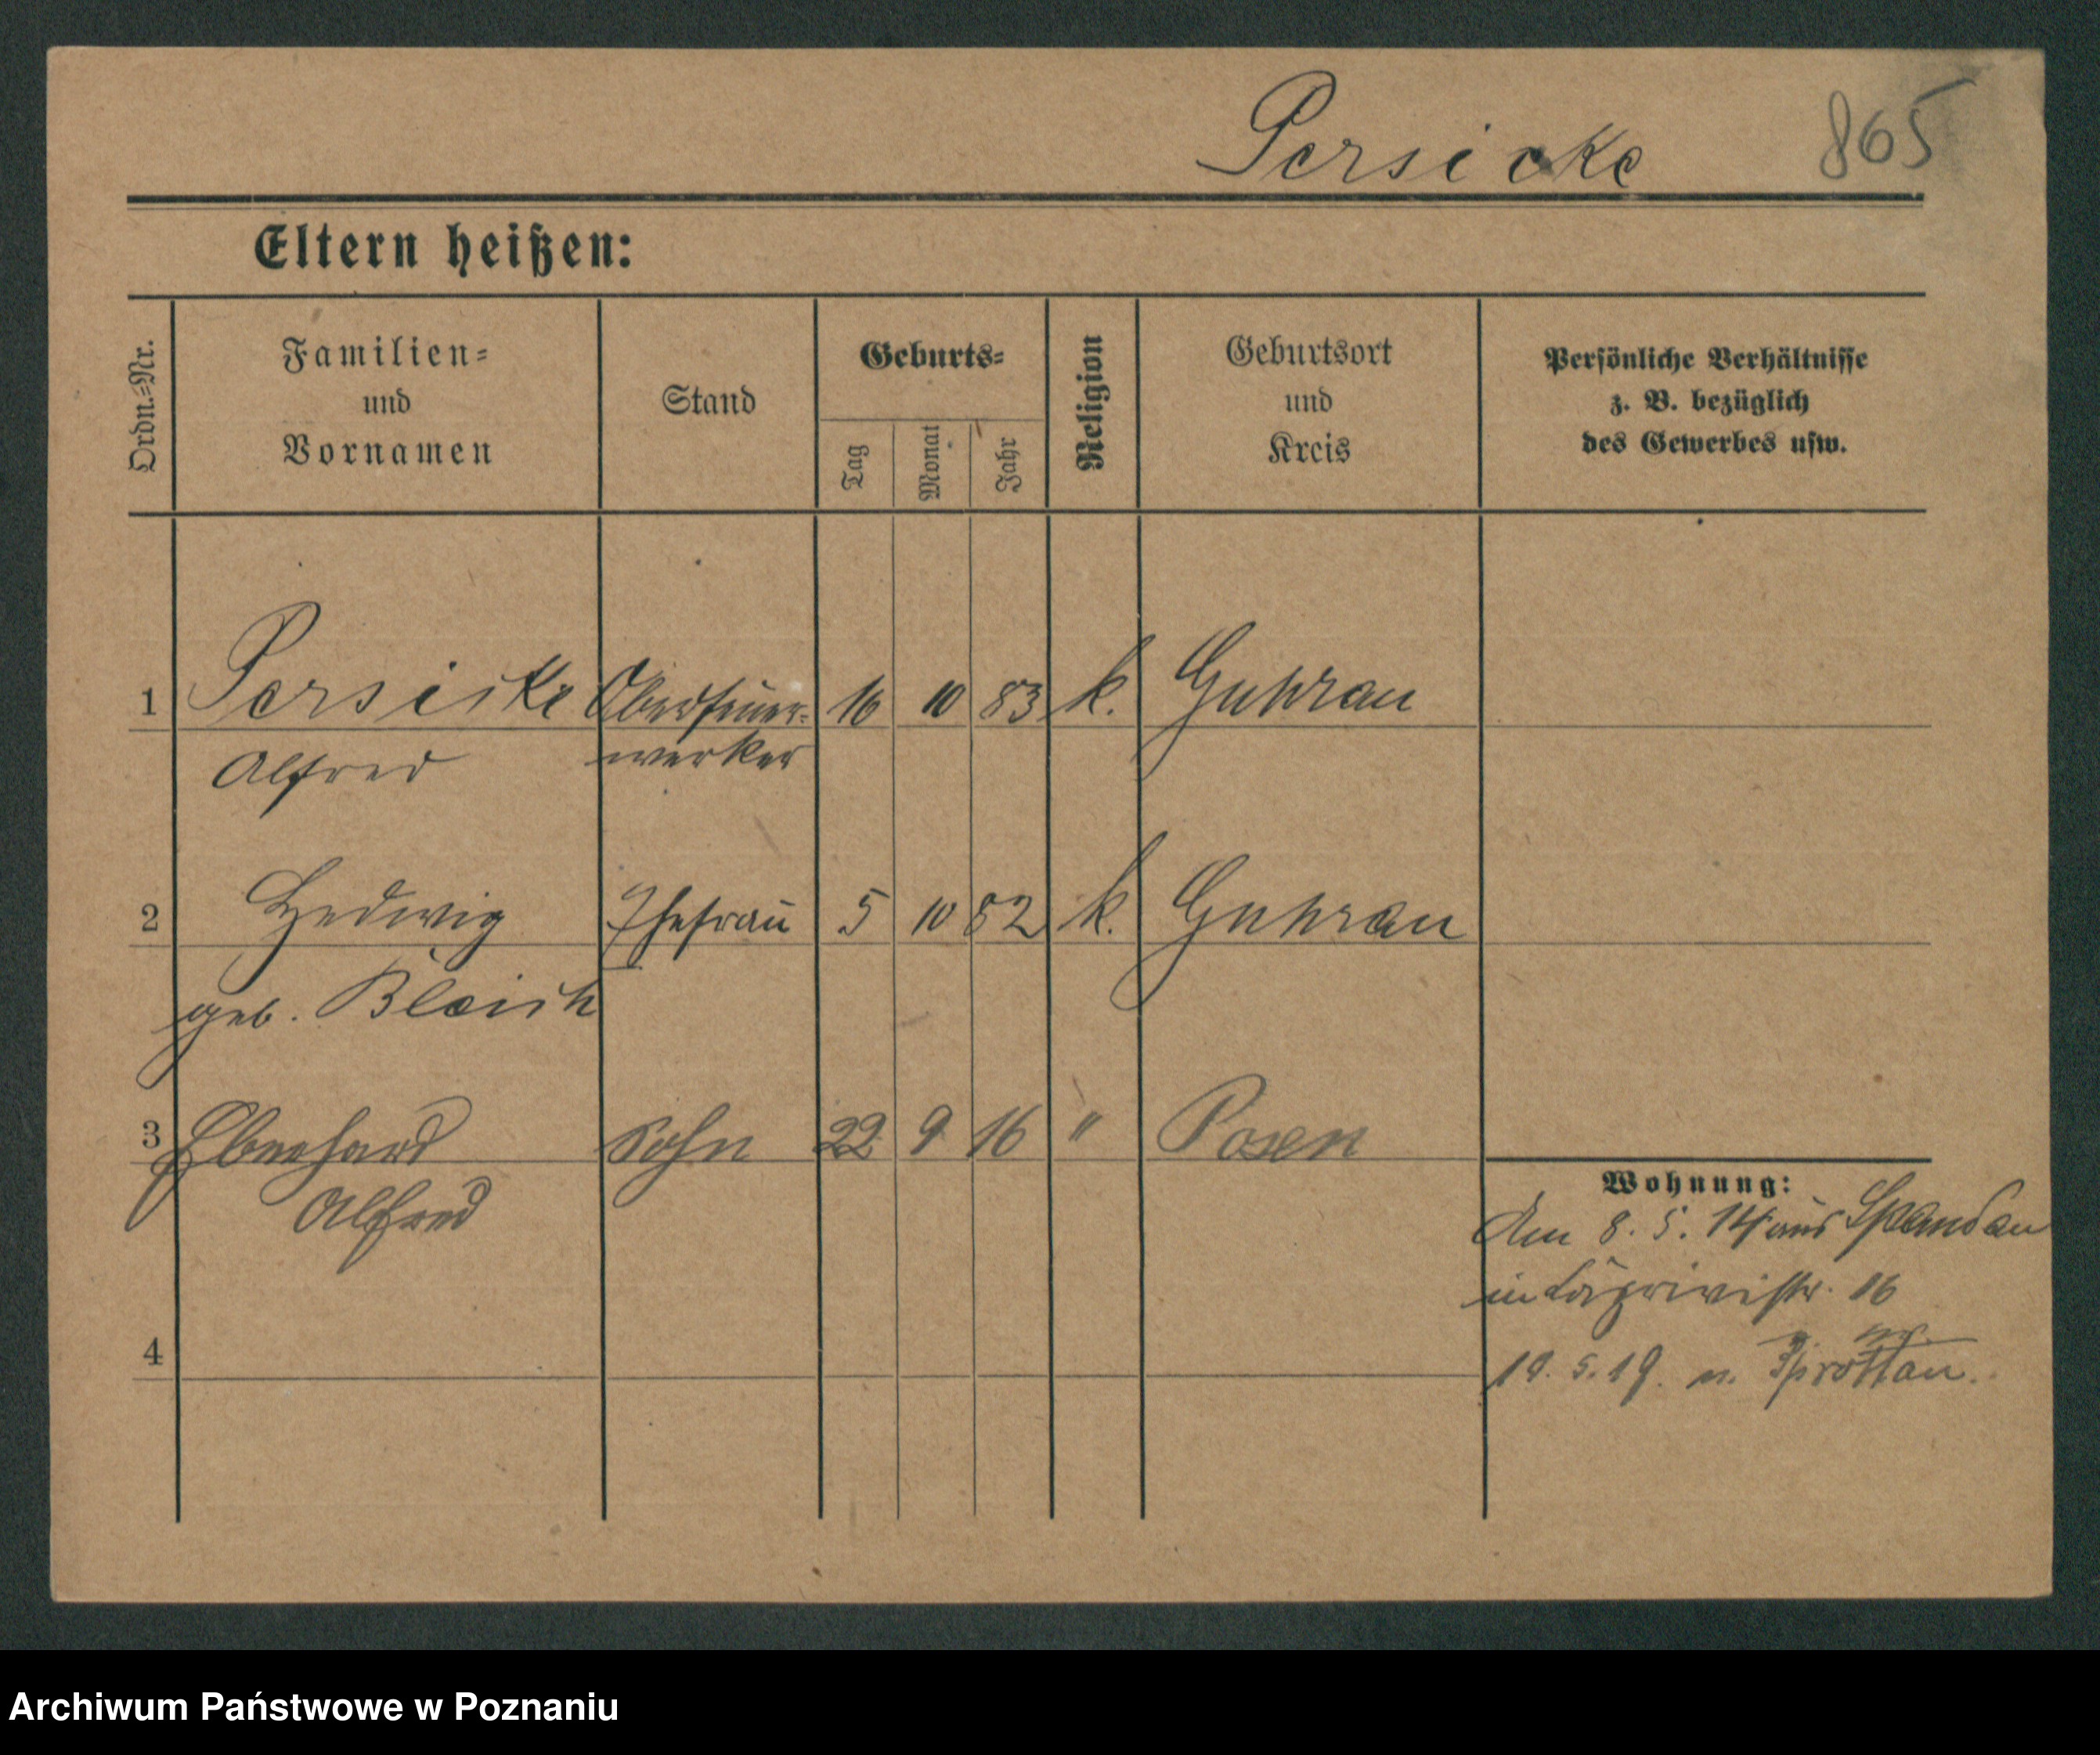 Persicke 865
Eltern heißen:
Ordn.=Nr.
Familien=
und
Vornamen
Stand
Geburts=
Tag
Monat
Jahr
Religion
Geburtsort
und
Kreis
Persönliche Verhältnisse
z. B. bezüglich
des Gewerbes usw.
1 Persicke Oberfeuer- 16 10 83 k. Guhrau
Alfred werker
2 Hedwig Ehefrau 5 10 82 k. Guhrau
geb.
3 Eberhard Sohn 22 9 16 " Posen
Alfred
Wohnung:
Am 8. 5. 14 aus Spandau
in Caprivistr. 16
4
19. 5. 19. n. Sprottau.
Archiwum Państwowe w Poznaniu